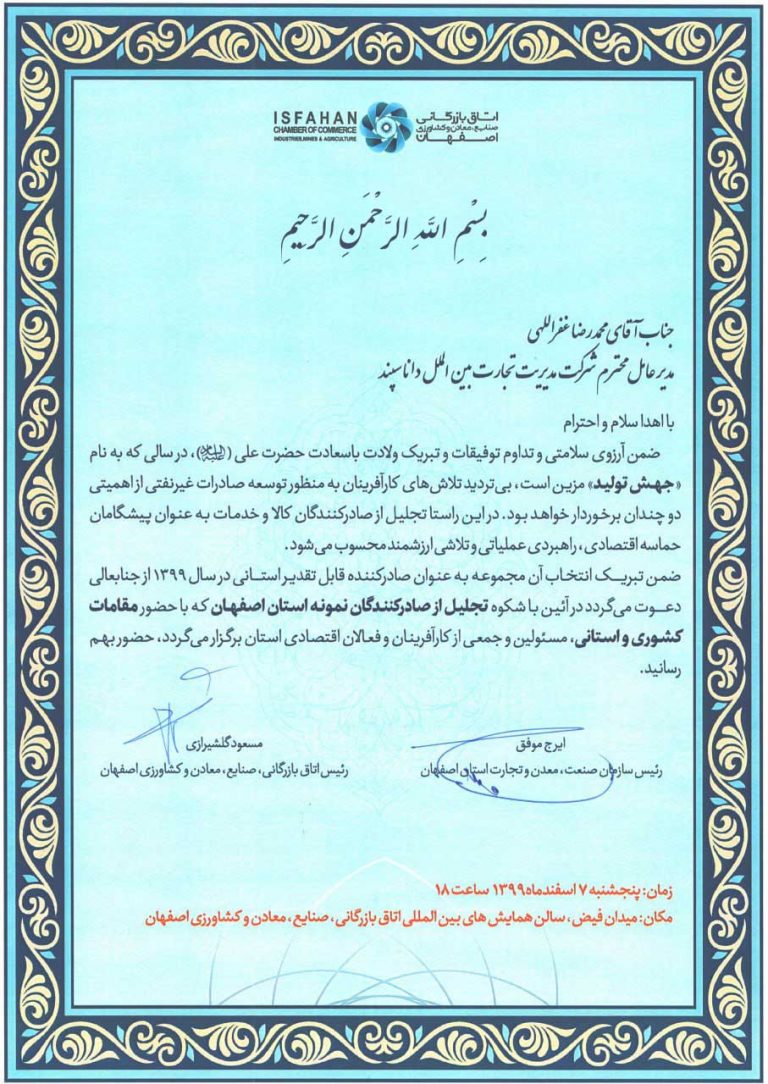 ISFAHAN
CHAMBER OF COMMERCE
INDUSTRIES, MINES & AGRICULTURE
اتاق بازرگانی
صنایع، معادن و کشاورزی
اصفهان
بِسْمِ اللَّهِ الرَّحْمَنِ الرَّحِیمِ
جناب آقای محمدرضا غفراللهی
مدیر عامل محترم شرکت مدیریت تجارت بین الملل دانا سپند
با اهدا سلام و احترام
ضمن آرزوی سلامتی و تداوم توفیقات و تبریک ولادت باسعادت حضرت علی (علیه‌السلام)، در سالی که به نام
«جهش تولید» مزین است، بی‌تردید تلاش‌های کارآفرینان به منظور توسعه صادرات غیرنفتی از اهمیتی
دو چندان برخوردار خواهد بود. در این راستا تجلیل از صادرکنندگان کالا و خدمات به عنوان پیشگامان
حماسه اقتصادی، راهبردی عملیاتی و تلاشی ارزشمند محسوب می‌شود.
ضمن تبریک انتخاب آن مجموعه به عنوان صادرکننده قابل تقدیر استانی در سال ۱۳۹۹ از جنابعالی
دعوت می‌گردد در آئین با شکوه تجلیل از صادرکنندگان نمونه استان اصفهان که با حضور مقامات
کشوری و استانی، مسئولین و جمعی از کارآفرینان و فعالان اقتصادی استان برگزار می‌گردد، حضور بهم
رسانید.
ایرج موفق
رئیس سازمان صنعت، معدن و تجارت استان اصفهان
مسعود گلشیرازی
رئیس اتاق بازرگانی، صنایع، معادن و کشاورزی اصفهان
زمان: پنجشنبه ۷ اسفندماه ۱۳۹۹ ساعت ۱۸
مکان: میدان فیض، سالن همایش های بین المللی اتاق بازرگانی، صنایع، معادن و کشاورزی اصفهان